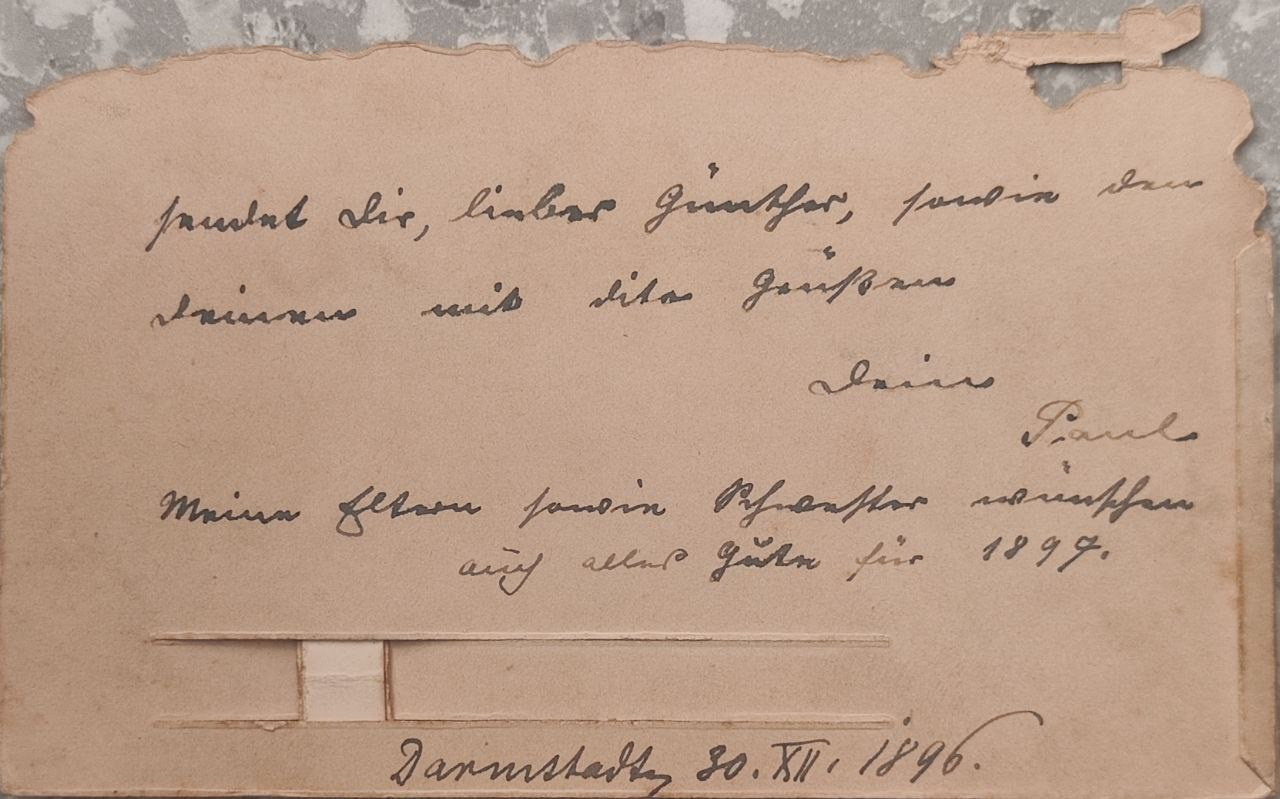 sendet Dir, lieber Günther, sowie den
Deinen mit Grüßen
Dein
Paul
Meine Eltern sowie Schwester wünschen
auch alles Gute für 1897.
Darmstadt, 30. XII. 1896.